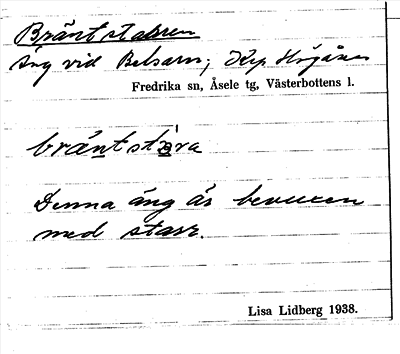 Bräntstarren
äng vid Belsarn; Krp Högåsen
Fredrika sn, Åsele tg, Västerbottens l.
bräntstàra
Denna äng är bevuxen
med starr.
Lisa Lidberg 1938.